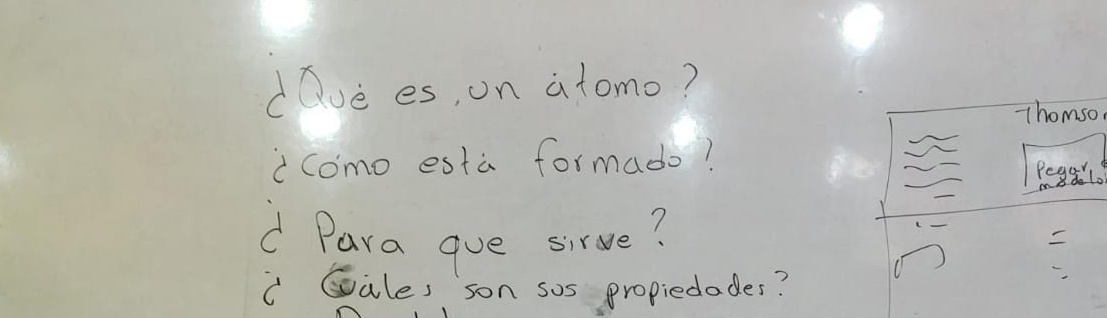 ¿Qué es un átomo?
¿Cómo está formado?
¿Para que sirve?
¿Cuáles son sus propiedades?
Thomson
Pegar
modelo